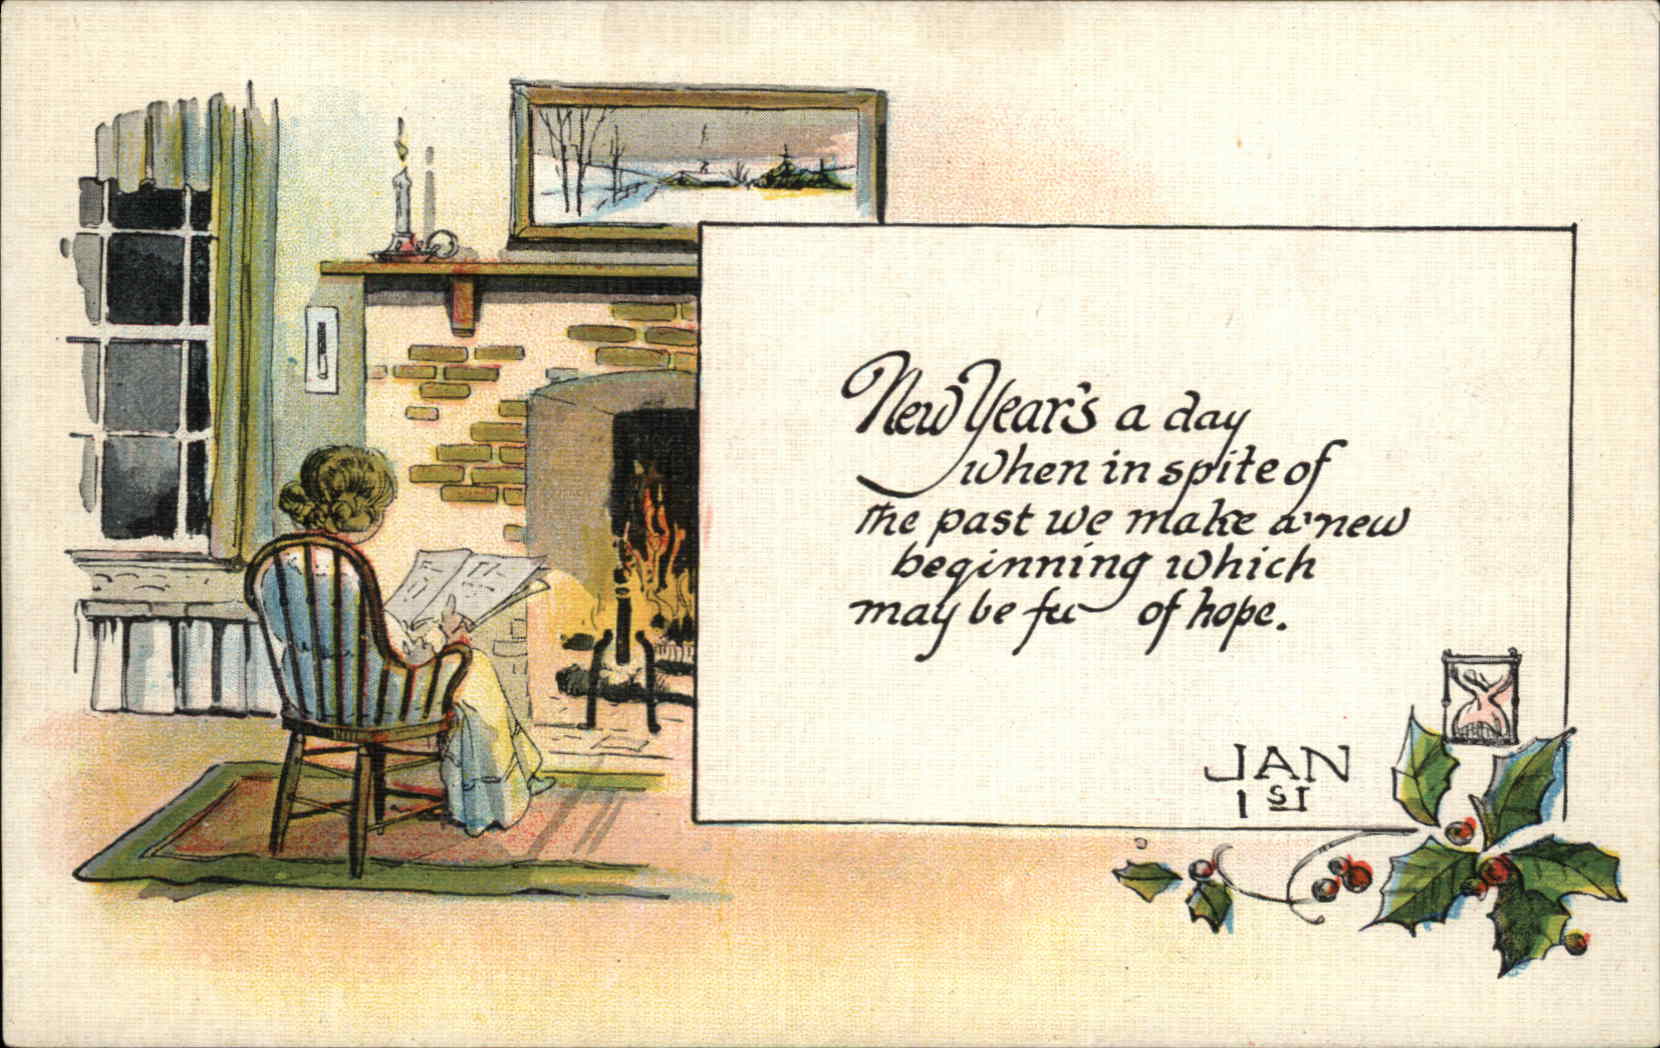 New Year's a day
when in spite of
the past we make a new
beginning which
may be full of hope.
JAN
1ST